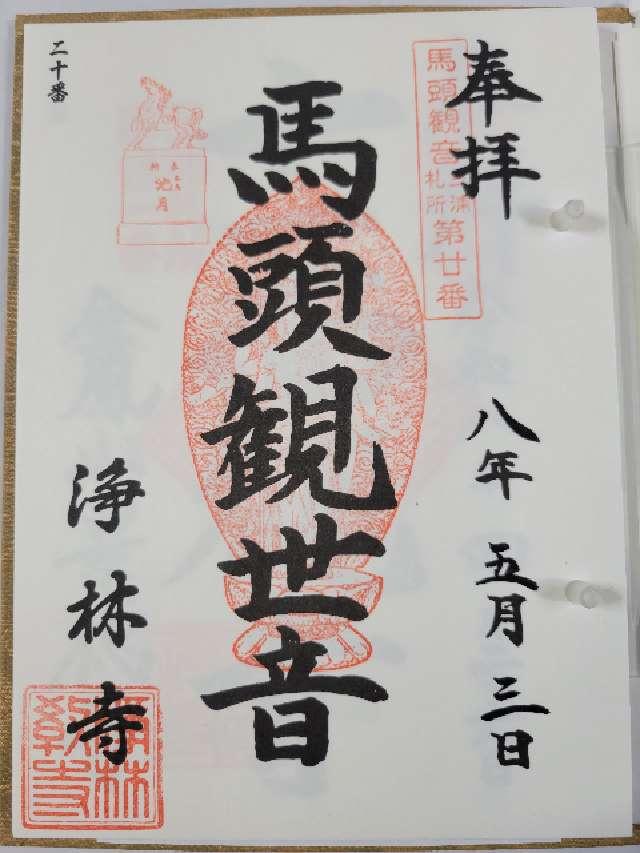 奉拝
八年 五月 三日
馬頭観音
三浦
札所
第廿番
馬頭観世音
二十番
池月
浄林寺